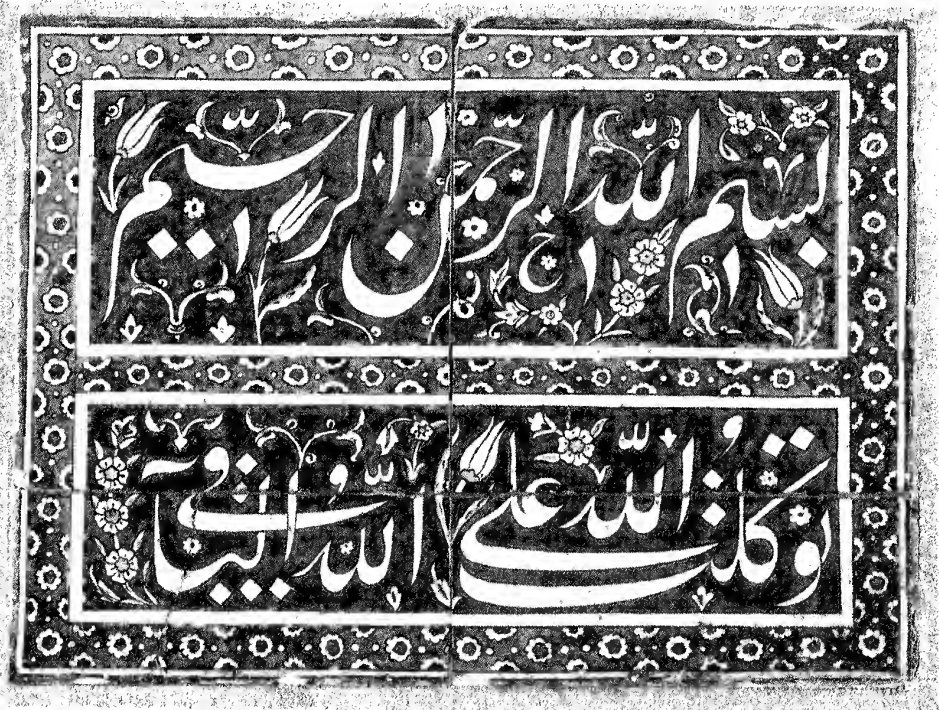 بسم الله الرحمن الرحيم
توكلت على الله الله الباقي